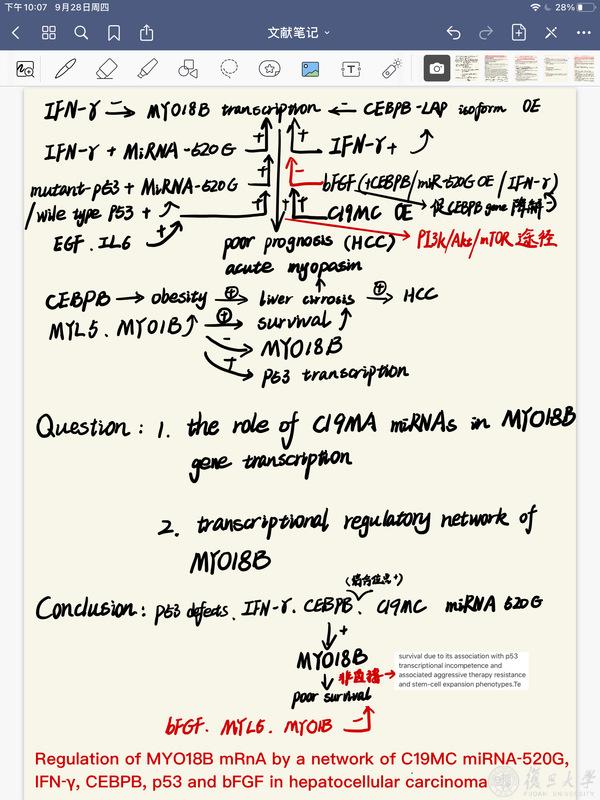 下午10:07 9月28日周四
28%
文献笔记
IFN-γ → MYO18B transcription ← CEBPB-LAP isoform OE
IFN-γ + MiRNA-520G
IFN-γ +
mutant-p53 + MiRNA-520G
bFGF (+CEBPB/miR-520G OE / IFN-γ)
/wile type P53 +
C19MC OE
促CEBPB gene 降解
EGF. IL6
poor prognosis (HCC)
PI3k/Akt/mTOR 途径
acute myopasim
CEBPB → obesity → liver cirrosis → HCC
MYL5. MYO1B ↑ → survival ↑
MYO18B
P53 transcription
Question: 1. the role of C19MA miRNAs in MYO18B
gene transcription
2. transcriptional regulatory network of
MYO18B
Conclusion: P53 defects. IFN-γ. CEBPB. C19MC miRNA 520G
+
MYO18B
非直接
survival due to its association with p53
transcriptional incompetence and
associated aggressive therapy resistance
and stem-cell expansion phenotypes.Te
poor survival
bFGF. MYL5. MYO1B
Regulation of MYO18B mRnA by a network of C19MC miRNA-520G,
IFN-γ, CEBPB, p53 and bFGF in hepatocellular carcinoma
復旦大學
FUDAN UNIVERSITY